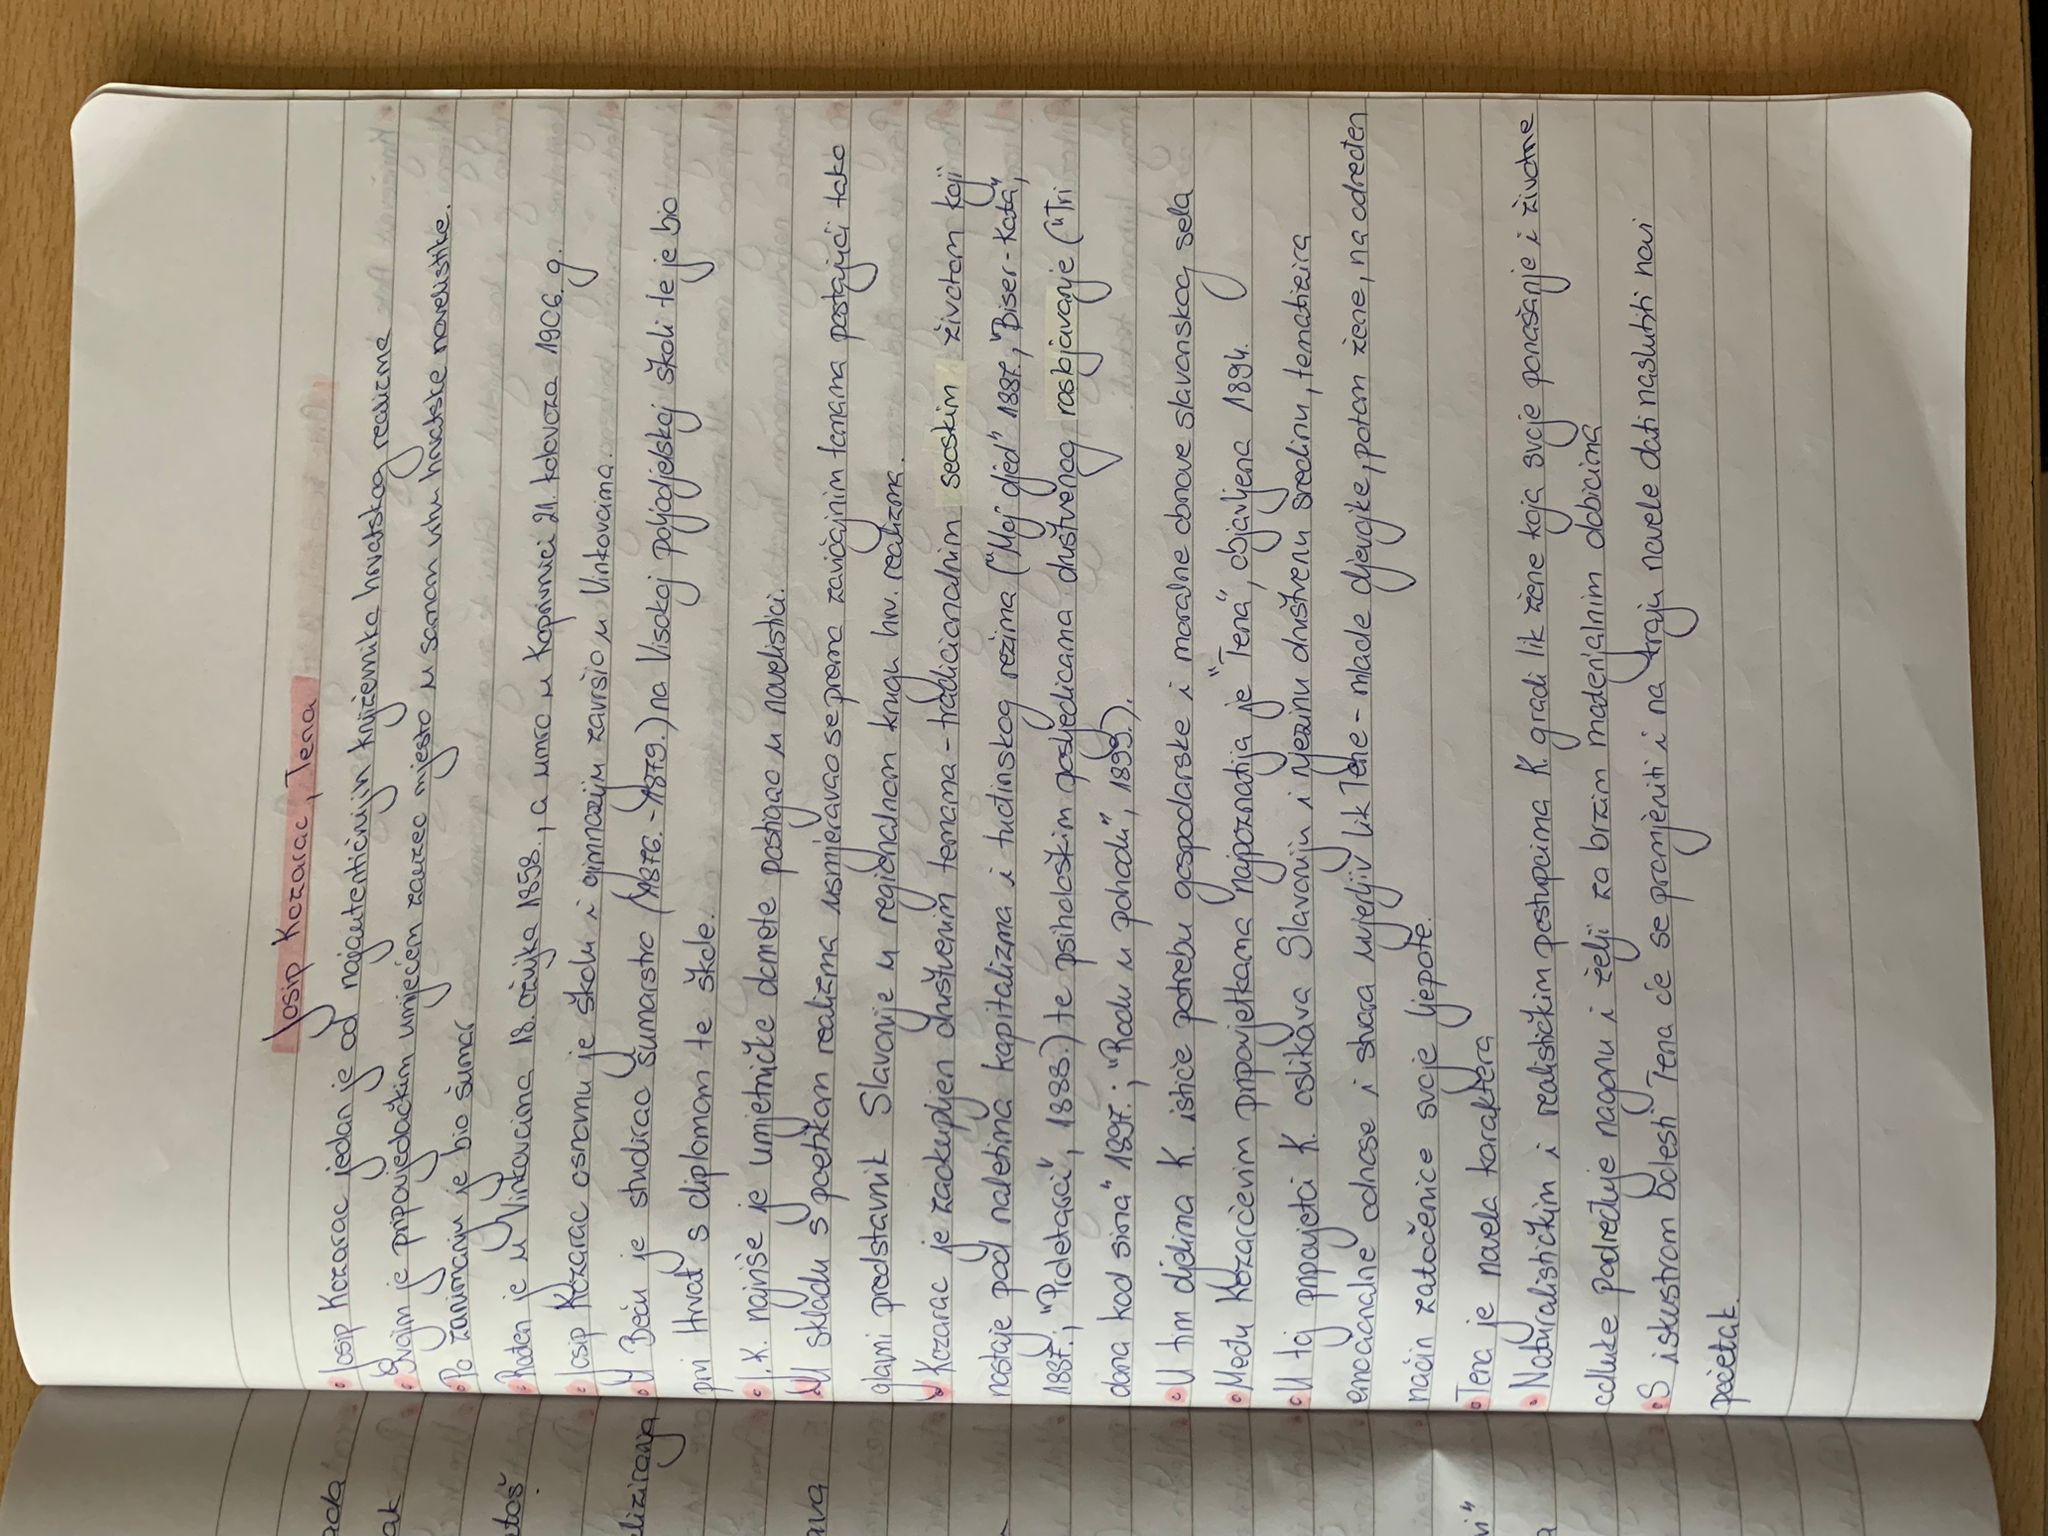 Josip Kozarac, Tena
Josip Kozarac jedan je od najautentičnijih književnika hrvatskog realizma
Svojim je pripovjedačkim umijećem zauzeo mjesto u samom vrhu hrvatske novelistike.
Po zanimanju je bio šumar
Rođen je u Vinkovcima 18. ožujka 1858., a umro u Koprivnici 21. kolovoza 1906. g.
Josip Kozarac osnovnu je školu i gimnaziju završio u Vinkovcima.
U Beču je studirao šumarstvo (1876.-1879.) na Visokoj poljodjelskoj školi te je bio
prvi Hrvat s diplomom te škole.
J.K. najviše je umjetničke domete postigao u novelistici.
U skladu s poetikom realizma usmjeravao se prema zavičajnim temama postajući tako
glavni predstavnik Slavonije u regionalnom krugu hrv. realizma.
Kozarac je zaokupljen društvenim temama - tradicionalnim seoskim životom koji
nestaje pod naletima kapitalizma i tuđinskog režima ("Moj djed" 1887., "Biser-Kata",
1887., "Proletarci", 1888.) te psihološkim posljedicama društvenog raslojavanje ("Tri
dana kod sina" 1897.; "Rodu u pohodu", 1899.).
U tim djelima K. ističe potrebu gospodarske i moralne obnove slavonskog sela
Među Kozarčevim pripovjetkama najpoznatija je "Tena", objavljena 1894.
U toj pripovjetci K. oslikava Slavoniju i njezinu društvenu sredinu, tematizira
emocionalne odnose i stvara uvjerljiv lik Tene - mlade djevojke, potom žene, na određen
način zatočenice svoje ljepote.
Tena je novela karaktera
Naturalističkim i realističkim postupcima K. gradi lik žene koja svoje ponašanje i životne
odluke podređuje nagonu i želji za brzim materijalnim dobicima
S iskustvom bolesti Tena će se promjeniti i na kraju novele dati naslutiti novi
početak.
ada
ak
utoš
elizirana
ava
vi"
a